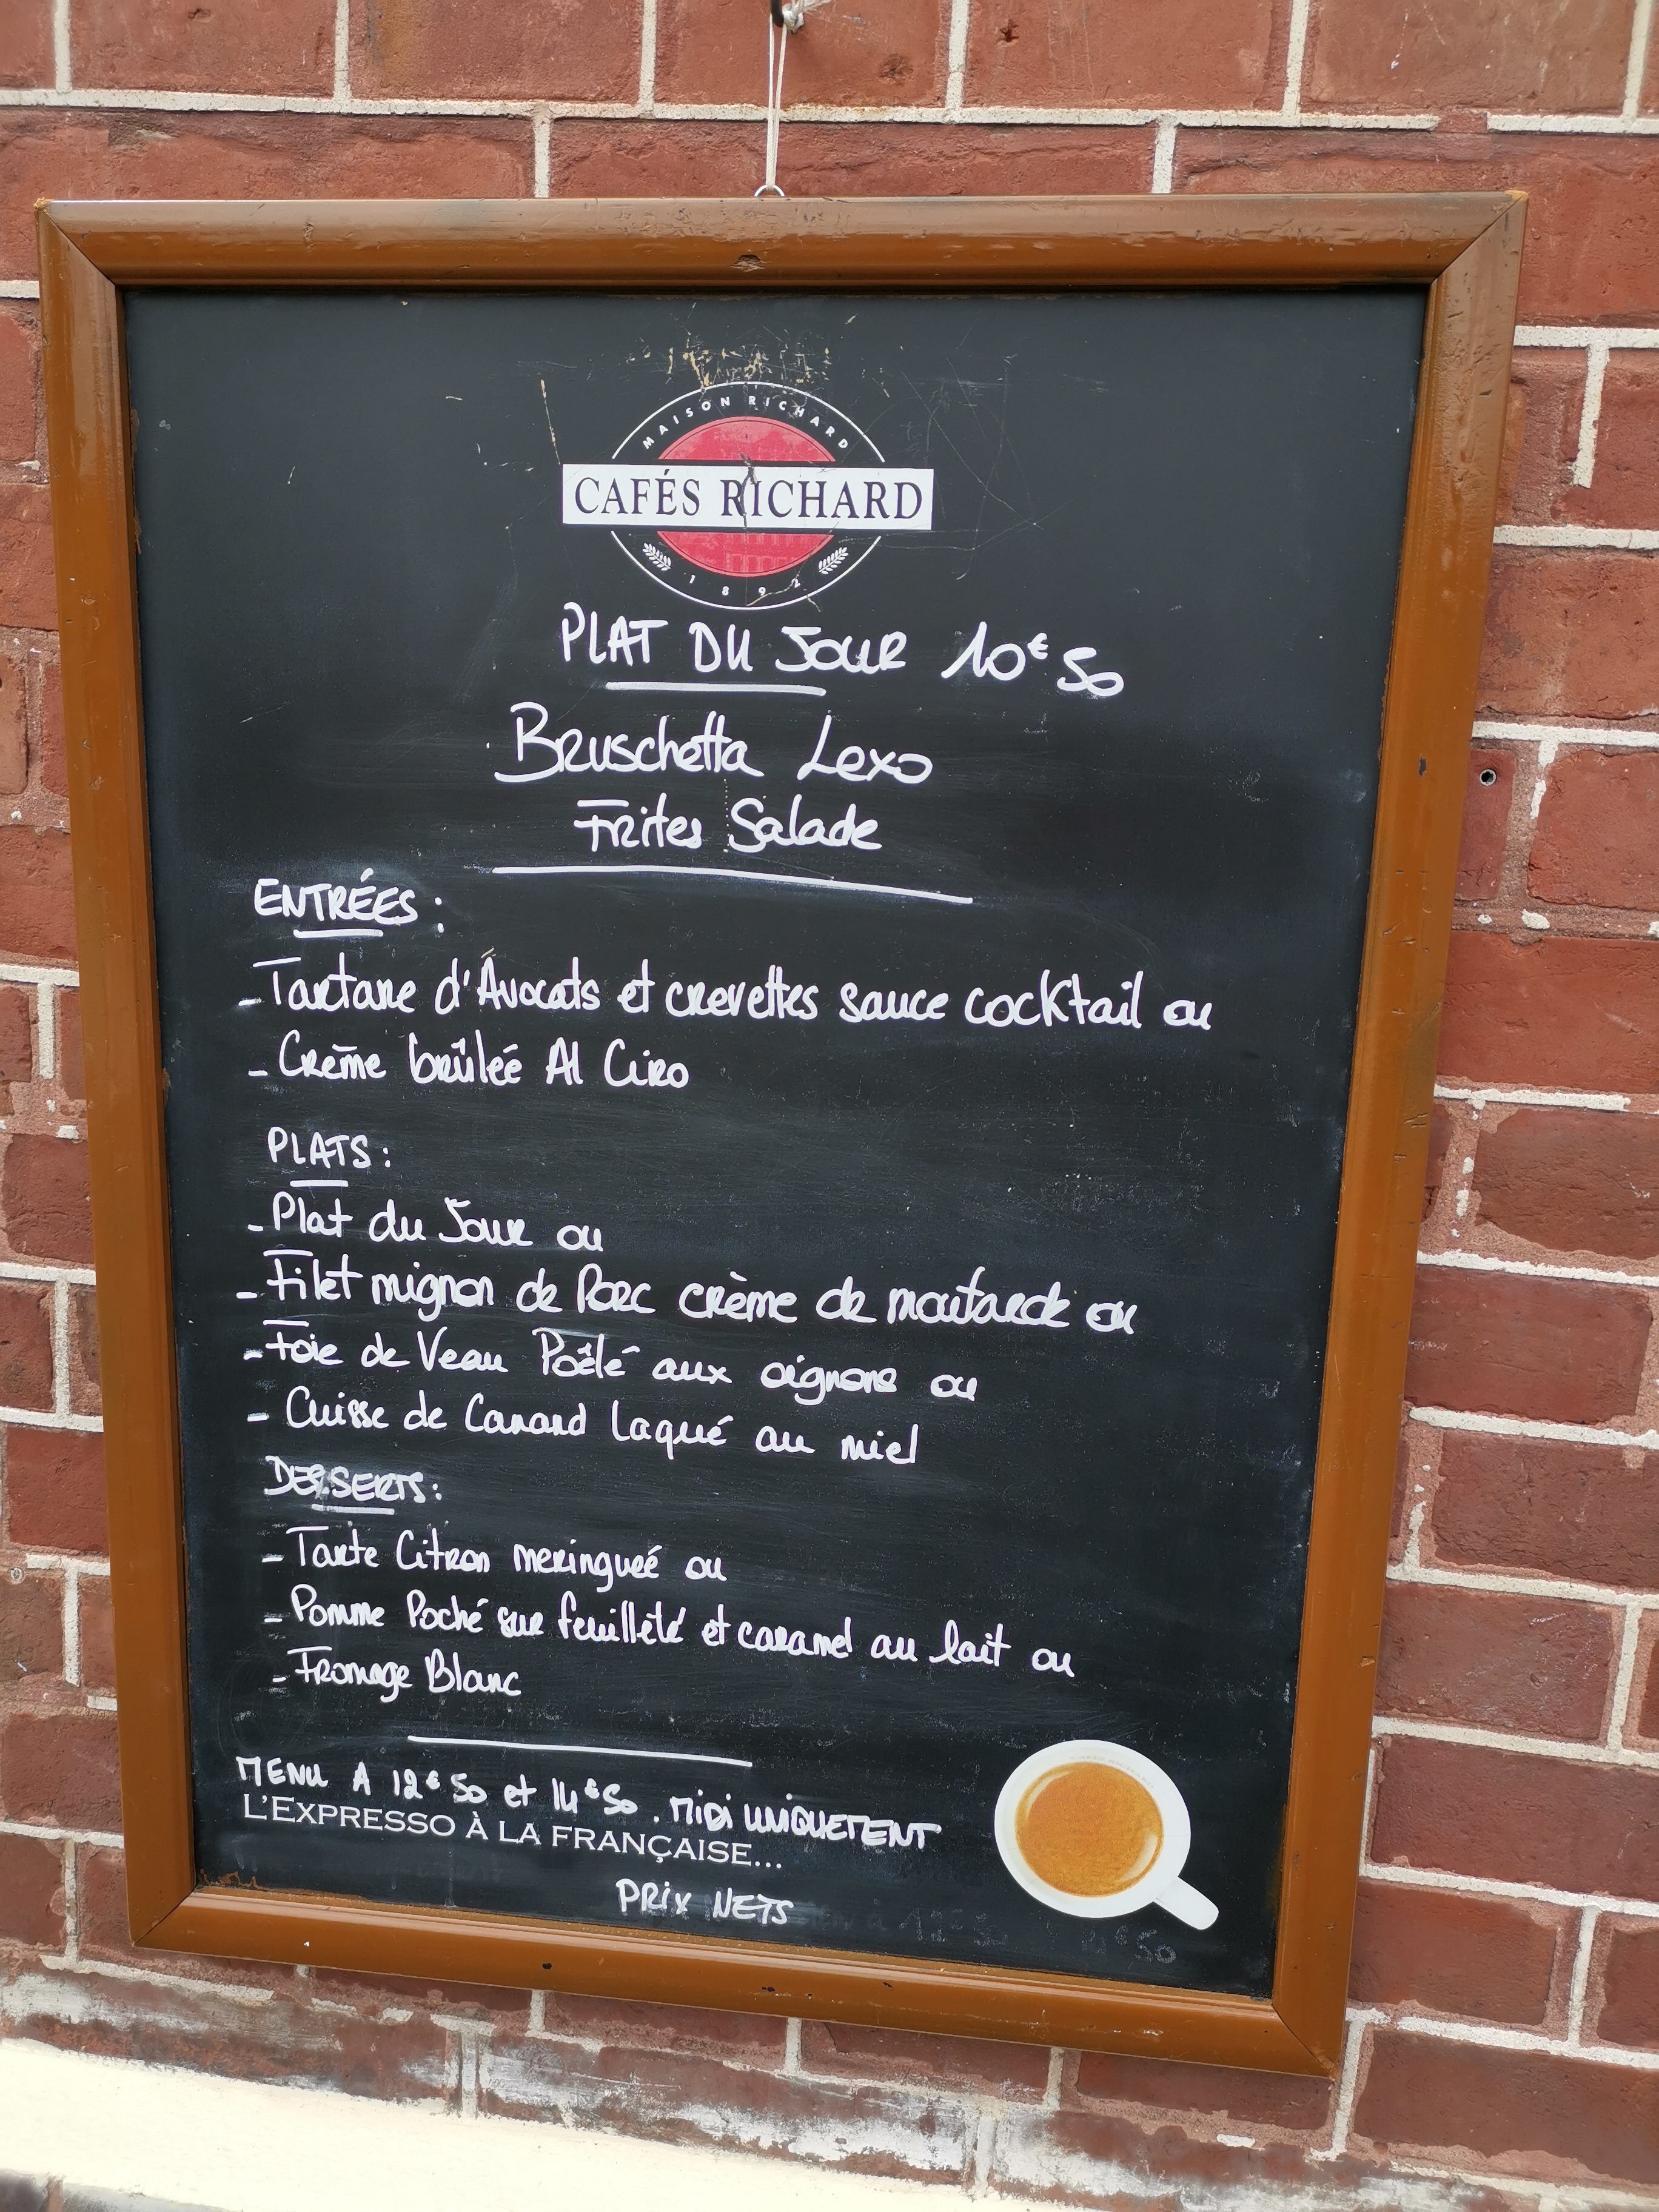 MAISON RICHARD
CAFÉS RICHARD
1892
PLAT DU JOUR 10€50
Bruschetta Lexo
Frites Salade
ENTRÉES :
- Tartare d'Avocats et crevettes sauce cocktail ou
- Crème brûleé Al Ciro
PLATS :
- Plat du Jour ou
- Filet mignon de Porc crème de moutarde ou
- Foie de Veau Poêlé aux oignons ou
- Cuisse de Canard Laqué au miel
DESSERTS :
- Tarte Citron meringueé ou
- Pomme Poché sur feuilleté et caramel au lait ou
- Fromage Blanc
MENU A 12€50 et 14€50 . MIDI UNIQUEMENT
L'EXPRESSO À LA FRANÇAISE...
PRIX NETS